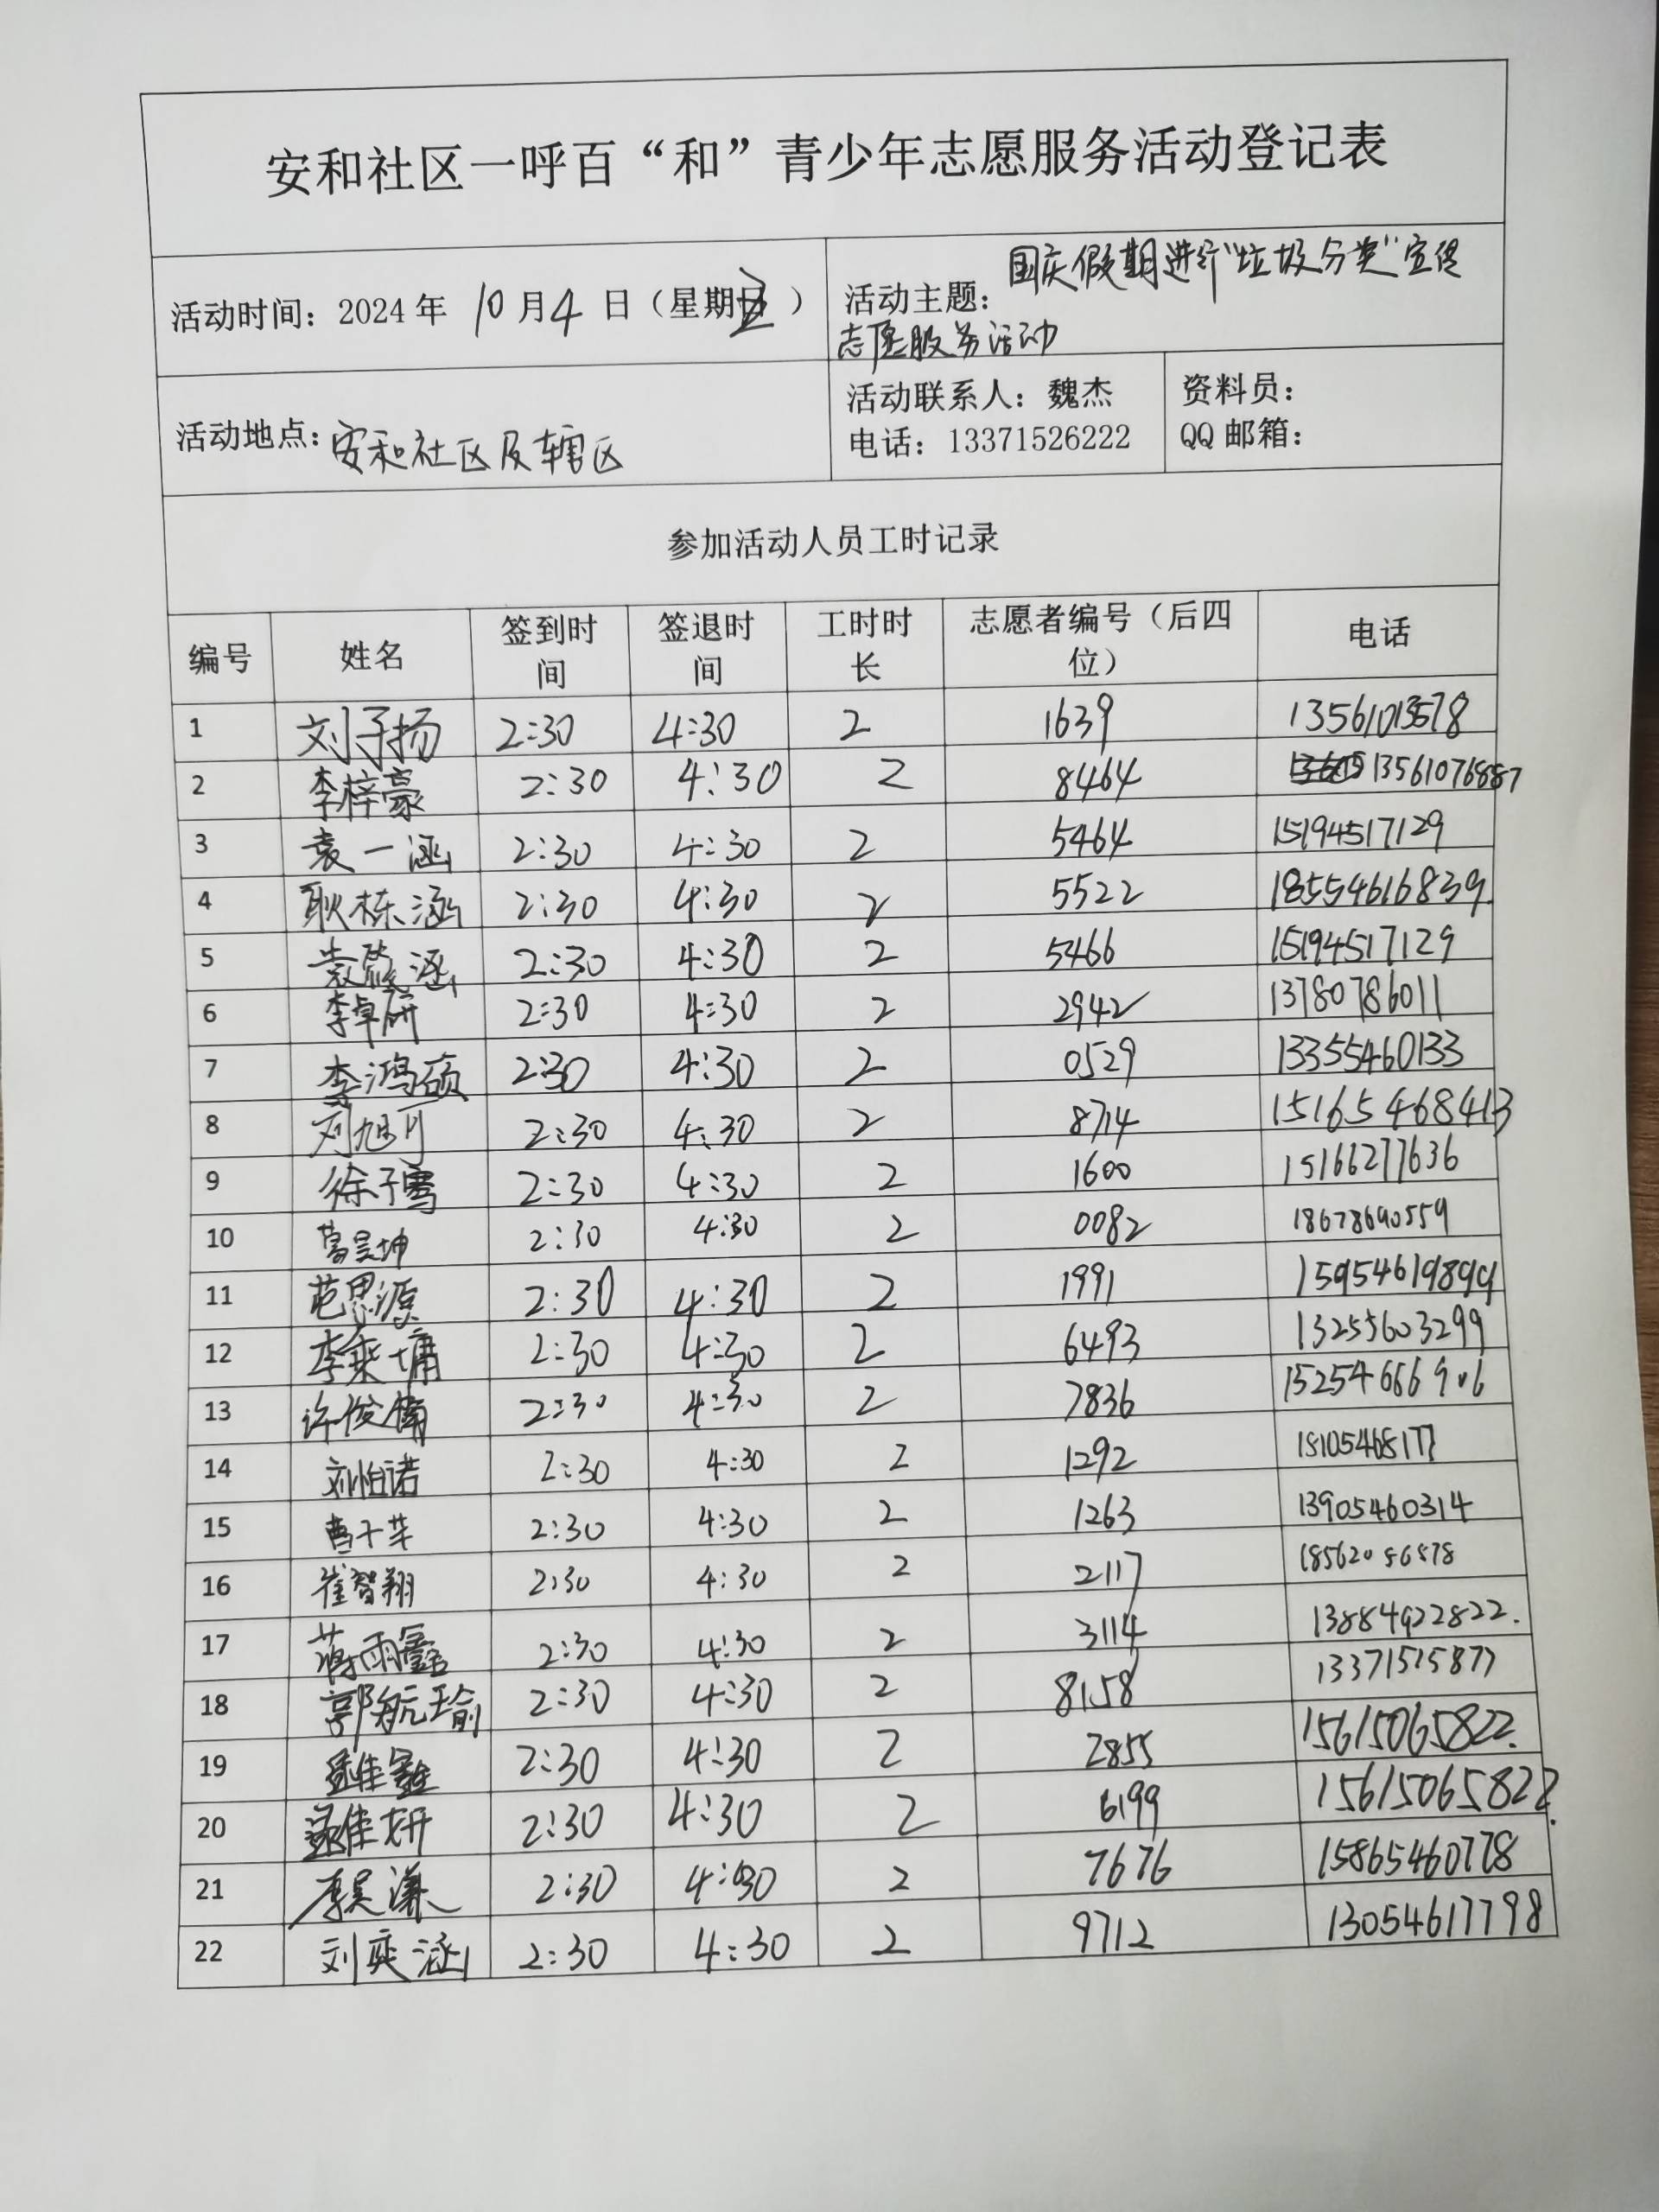 安和社区一呼百“和”青少年志愿服务活动登记表
活动时间：2024年 10月4 日（星期五）
活动主题：国庆假期进行“垃圾分类”宣传
志愿服务活动
活动地点：安和社区及辖区
活动联系人：魏杰
电话：13371526222
资料员：
QQ邮箱：
参加活动人员工时记录
编号 姓名 签到时间 签退时间 工时时长 志愿者编号（后四位） 电话
1 刘子扬 2:30 4:30 2 1639 13561013578
2 李梓豪 2:30 4:30 2 8464 13561076887
3 袁一涵 2:30 4:30 2 5464 15194517129
4 耿栋涵 2:30 4:30 2 5522 18554616839.
5 袁 涵 2:30 4:30 2 5466 15194517129
6 李卓妍 2:30 4:30 2 2942 13780786011
7 李鸿硕 2:30 4:30 2 0529 13355460133
8 刘旭可 2:30 4:30 2 8714 15165468413
9 徐子骞 2:30 4:30 2 1600 15166277636
10 葛昊坤 2:30 4:30 2 0082 18678690559
11 范思源 2:30 4:30 2 1991 15954619899
12 李秉墉 2:30 4:30 2 6493 13255603299
13 许俊楠 2:30 4:30 2 7836 15254666906
14 刘怡诺 2:30 4:30 2 1292 18105468177
15 曹十芊 2:30 4:30 2 1263 13905460314
16 崔智翔 2:30 4:30 2 2117
17 蒋雨鑫 2:30 4:30 2 3114 13884922822.
18 郭航瑜 2:30 4:30 2 8158 13371515877
19 2:30 4:30 2 2855 15615065822.
20 佳妍 2:30 4:30 2 6199 15615065822.
21 李昊谦 2:30 4:30 2 7676 15865460778
22 刘奕涵 2:30 4:30 2 9712 13054617798